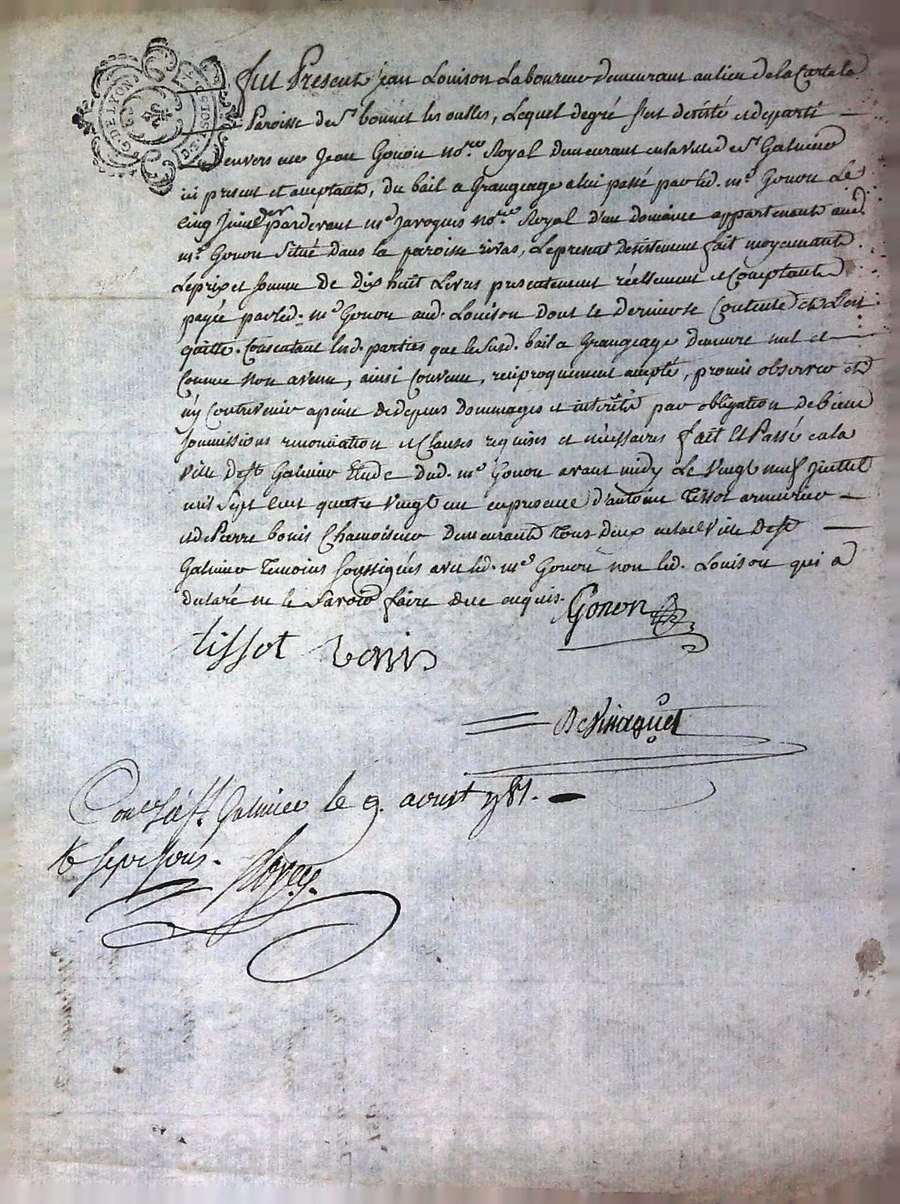 G. DE LYON
Fut Present jean Louison Laboureur demeurant au lieu de la
Paroisse de St bonnet les oulles, Lequel degré s'est desisté et departi
Denvers me Jean Gonon nore Royal demeurant en la ville de St Galmier
ici present et acceptant, du bail a Grangeage a lui passé par led. me Gonon Le
cinq pardevant me Jaroques nore Royal d'un domaine appartenant aud.
me Gonon Situé dans la paroisse rivas, Le present desistement fait moyennant
Le prix et somme de dix huit Livres presentement réellement et Comptant
payée par led. me Gonon aud. Louison dont le dernier Contente et L'en
quitte. Consentant lesd. parties que le susd. bail a Grangeage demeure nul et
Comme non avenu, ainsi convenu, reciproquement accepté, promis observer et
n'y Contrevenir a peine de depens dommages et interêts par obligation de biens
soumissions renonciation et Clauses requises et nécessaires fait Et Passé en la
ville de St Galmier Etude dud. me Gonon avant midy Le vingt neuf juillet
mil Sept Cent quatre vingt un en presence d'antoine Tissot armurier
et de Pierre bonis Chamoiseur demeurants tous deux en lad. Ville de St
Galmier Temoins soussignés avec led. me Gonon non led. Louison qui a
declaré ne le Savoir faire de ce enquis.
Gonon
tissot bonis
Conlé à St. Galmier le 9. aoust 1781.
R sept sous.